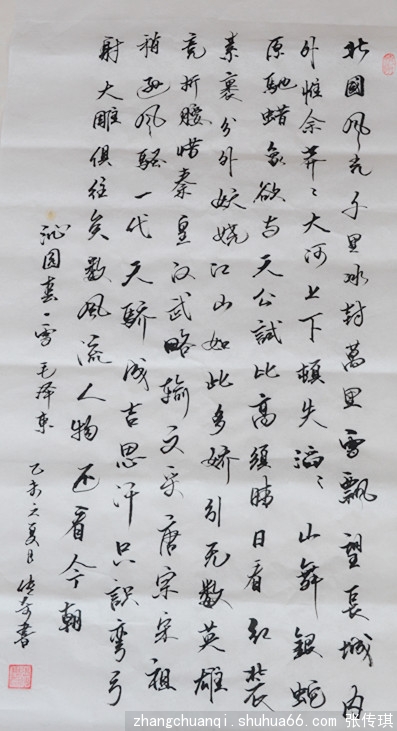 北國风光千里冰封萬里雪飄望長城内
外惟余莽々大河上下頓失滔々山舞銀蛇
原馳蜡象欲与天公試比高須晴日看红装
素裹分外妖娆江山如此多娇引无数英雄
竞折腰惜秦皇汉武略输文采唐宗宋祖
稍逊风骚一代天骄成吉思汗只識彎弓
射大雕俱往矣数風流人物还看今朝
沁园春·雪 毛泽东
乙未之夏日 书
zhangchuanqi.shuhua66.com 张传琪